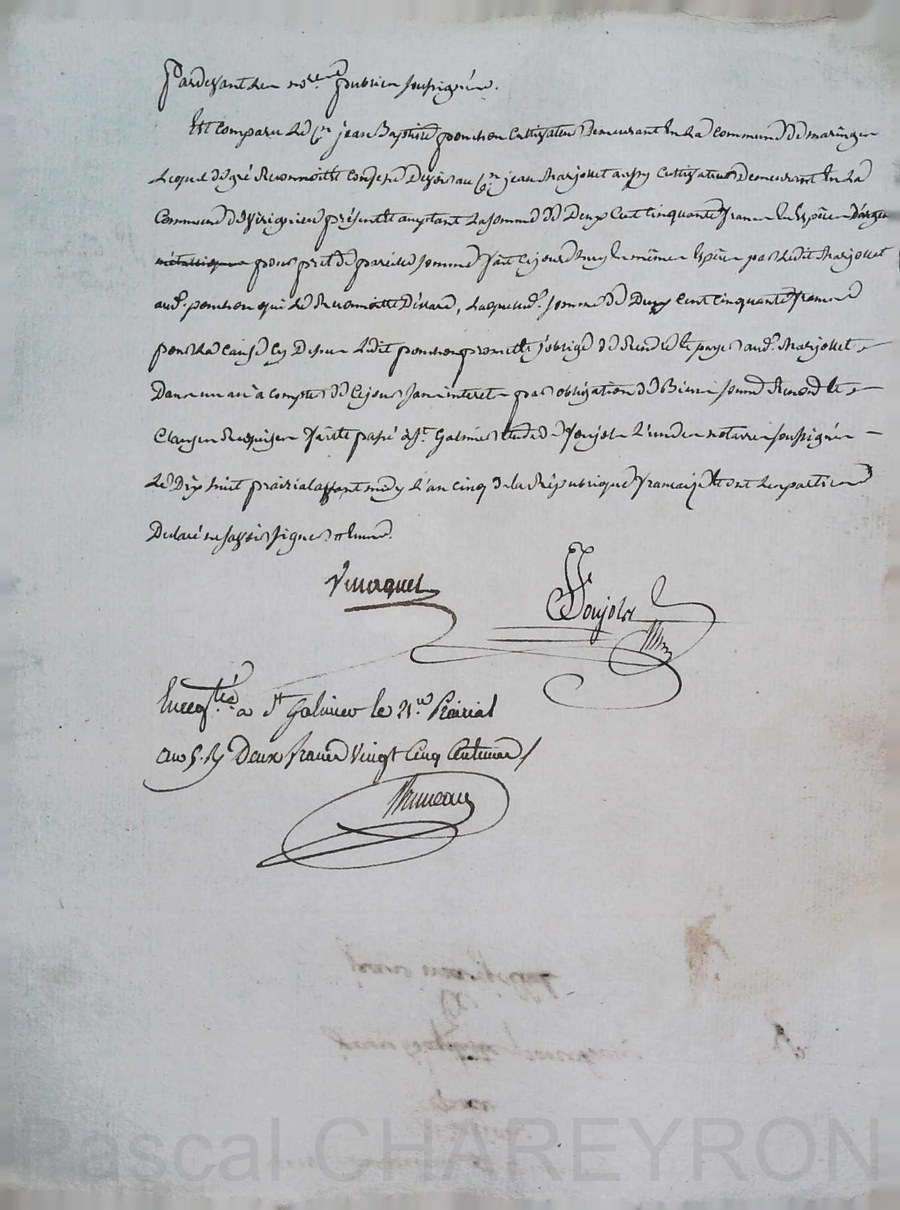 Pardevant les no.res publics soussignés.
Est comparu le Cn jean Baptiste ponchon Cultivateur demeurant en la Commune de maringes
Lequel de gré Reconnoit et Confesse devoir au Cn jean Marjollet aussy Cultivateur demeurant en la
Commune de Virigneux présent et acceptant la somme de Deux Cent Cinquante francs en Espèces D'argent
métallique pour prêt de pareille somme fait Cejourd'huy en même Espèce par Ledit Marjollet
aud. ponchon qui le Reconnoit et Déclare, Laquelle d. somme de Deux Cent Cinquante francs
pour la cause Cy Dessus Ledit ponchon promet et s'oblige de Rendre et payer aud. Marjollet
Dans un an à compter de Cejour sans interet par obligation de Biens soumis Renond et
Clauses Requises fait et passé à St. Galmier Etude de Ponjols L'un des notaires soussignés
Le Dix huit prairial avant midy L'an cinq de la République francaise et ont les parties
Declaré ne savoir signer
Ponjols
Enregtré a St Galmier le 21 Prairial
an 5. Ry Deux francs Vingt Cinq Centimes
Bruneau
Pascal CHAREYRON